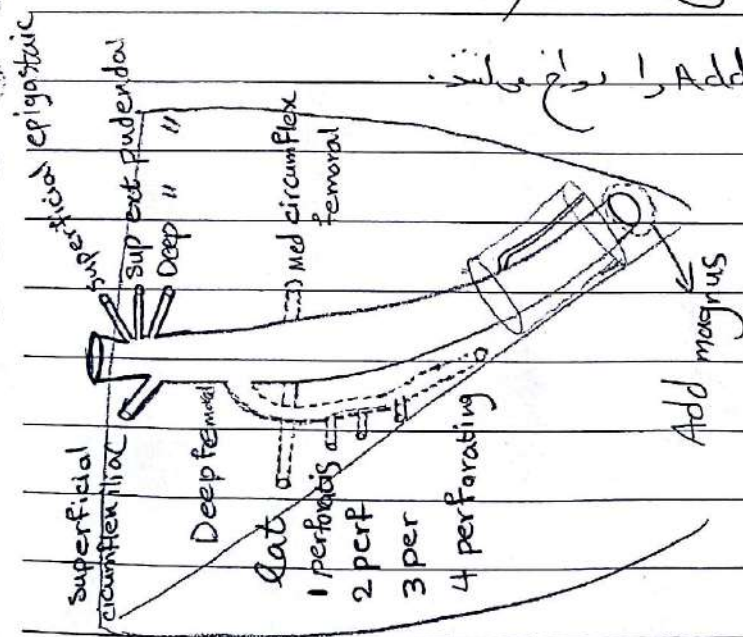 Add را
superficial epigastaic
Sup ext pudendal
Deep " "
Med circumflex
femoral
superficial
cicumflen iliac
Deep femoral
Lat
1 perforatis
2 perf
3 per
4 perforating
Add magnus